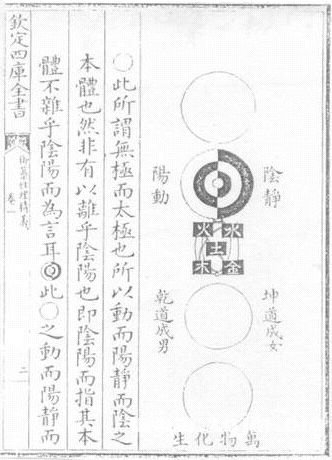 陰靜
陽動
水火
土
金木
坤道成女
乾道成男
萬物化生
○此所謂無極而太極也所以動而陽靜而陰之
本體也然非有以離乎陰陽也即陰陽而指其本
體不雜乎陰陽而為言耳◎此○之動而陽靜而
欽定四庫全書
御纂性理精義
卷一
二